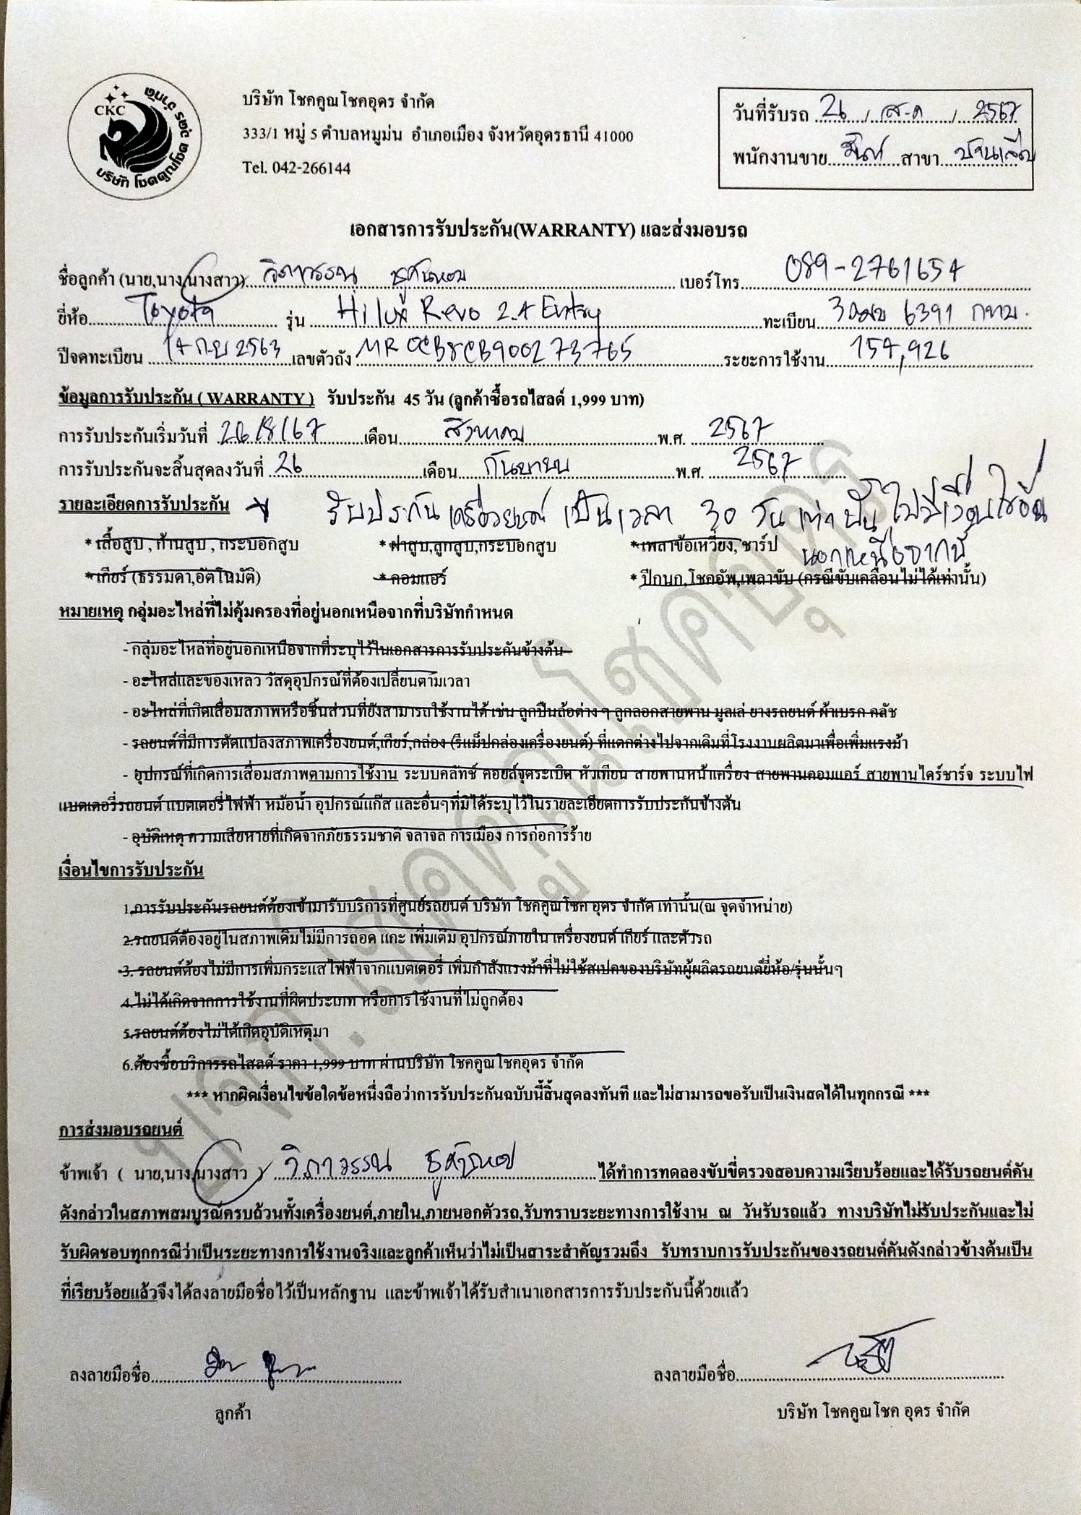 CKC
บริษัท โชคคูณโชค อุดร จำกัด
บริษัท โชคคูณโชคอุดร จำกัด
333/1 หมู่ 5 ตำบลหมูม่น อำเภอเมือง จังหวัดอุดรธานี 41000
Tel. 042-266144
วันที่รับรถ 26 / ส.ค / 2567
พนักงานขาย สาขา
เอกสารการรับประกัน(WARRANTY) และส่งมอบรถ
ชื่อลูกค้า (นาย,นาง,นางสาว) วิภาวรรณ เบอร์โทร 089-2761654
ยี่ห้อ Toyota รุ่น Hilux Revo 2.4 Entry ทะเบียน 6391 กทม.
ปีจดทะเบียน 14 กย 2563 เลขตัวถัง MR0CB8CB900273765 ระยะการใช้งาน 154,926
ข้อมูลการรับประกัน ( WARRANTY ) รับประกัน 45 วัน (ลูกค้าซื้อรถไสลด์ 1,999 บาท)
การรับประกันเริ่มวันที่ 26/8/67 เดือน สิงหาคม พ.ศ. 2567
การรับประกันจะสิ้นสุดลงวันที่ 26 เดือน กันยายน พ.ศ. 2567
รายละเอียดการรับประกัน * รับประกัน เครื่องยนต์ เป็นเวลา 30 วัน เท่านั้น ไม่มีเงื่อนไขอื่น
นอกเหนือจากนี้
* เสื้อสูบ , ก้านสูบ , กระบอกสูบ * ฝาสูบ,ลูกสูบ,กระบอกสูบ * เพลาข้อเหวี่ยง, ชาร์ป
* เกียร์ (ธรรมดา,อัตโนมัติ) * คอมแอร์ * ปีกนก,โชคอัพ,เพลาขับ (กรณีขับเคลื่อนไม่ได้เท่านั้น)
หมายเหตุ กลุ่มอะไหล่ที่ไม่คุ้มครองที่อยู่นอกเหนือจากที่บริษัทกำหนด
- กลุ่มอะไหล่ที่อยู่นอกเหนือจากที่ระบุไว้ในเอกสารการรับประกันข้างต้น
- อะไหล่และของเหลว วัสดุอุปกรณ์ที่ต้องเปลี่ยนตามเวลา
- อะไหล่ที่เกิดเสื่อมสภาพหรือชิ้นส่วนที่ยังสามารถใช้งานได้ เช่น ลูกปืนล้อต่าง ๆ ลูกลอกสายพาน มูลเล่ ยางรถยนต์ ผ้าเบรก คลัช
- รถยนต์ที่มีการดัดแปลงสภาพเครื่องยนต์,เกียร์,กล่อง (รีแม็ปกล่องเครื่องยนต์) ที่แตกต่างไปจากเดิมที่โรงงานผลิตมาเพื่อเพิ่มแรงม้า
- อุปกรณ์ที่เกิดการเสื่อมสภาพตามการใช้งาน ระบบคลัทช์ คอยล์จุดระเบิด หัวเทียน สายพานหน้าเครื่อง สายพานคอมแอร์ สายพานไดร์ชาร์จ ระบบไฟ
แบตเตอรี่รถยนต์ แบตเตอรี่ไฟฟ้า หม้อน้ำ อุปกรณ์แก๊ส และอื่นๆที่มิได้ระบุไว้ในรายละเอียดการรับประกันข้างต้น
- อุบัติเหตุ ความเสียหายที่เกิดจากภัยธรรมชาติ จลาจล การเมือง การก่อการร้าย
เงื่อนไขการรับประกัน
1.การรับประกันรถยนต์ต้องเข้ามารับบริการที่ศูนย์รถยนต์ บริษัท โชคคูณโชค อุดร จำกัด เท่านั้น(ณ จุดจำหน่าย)
2.รถยนต์ต้องอยู่ในสภาพเดิมไม่มีการถอด แกะ เพิ่มเติม อุปกรณ์ภายใน เครื่องยนต์ เกียร์ และตัวรถ
3. รถยนต์ต้องไม่มีการเพิ่มกระแสไฟฟ้าจากแบตเตอรี่ เพิ่มกำลังแรงม้าที่ไม่ใช้สเปคของบริษัทผู้ผลิตรถยนต์ยี่ห้อ/รุ่นนั้นๆ
4.ไม่ได้เกิดจากการใช้งานที่ผิดประเภท หรือการใช้งานที่ไม่ถูกต้อง
5.รถยนต์ต้องไม่ได้เกิดอุบัติเหตุมา
6.ต้องซื้อบริการรถไสลด์ ราคา 1,999 บาท ผ่านบริษัท โชคคูณโชคอุดร จำกัด
*** หากผิดเงื่อนไขข้อใดข้อหนึ่งถือว่าการรับประกันฉบับนี้สิ้นสุดลงทันที และไม่สามารถขอรับเป็นเงินสดได้ในทุกกรณี ***
การส่งมอบรถยนต์
ข้าพเจ้า ( นาย,นาง,นางสาว ) วิภาวรรณ ได้ทำการทดลองขับขี่ตรวจสอบความเรียบร้อยและได้รับรถยนต์คัน
ดังกล่าวในสภาพสมบูรณ์ครบถ้วนทั้งเครื่องยนต์,ภายใน,ภายนอกตัวรถ,รับทราบระยะทางการใช้งาน ณ วันรับรถแล้ว ทางบริษัทไม่รับประกันและไม่
รับผิดชอบทุกกรณีว่าเป็นระยะทางการใช้งานจริงและลูกค้าเห็นว่าไม่เป็นสาระสำคัญรวมถึง รับทราบการรับประกันของรถยนต์คันดังกล่าวข้างต้นเป็น
ที่เรียบร้อยแล้วจึงได้ลงลายมือชื่อไว้เป็นหลักฐาน และข้าพเจ้าได้รับสำเนาเอกสารการรับประกันนี้ด้วยแล้ว
ลงลายมือชื่อ ลงลายมือชื่อ
ลูกค้า บริษัท โชคคูณโชค อุดร จำกัด